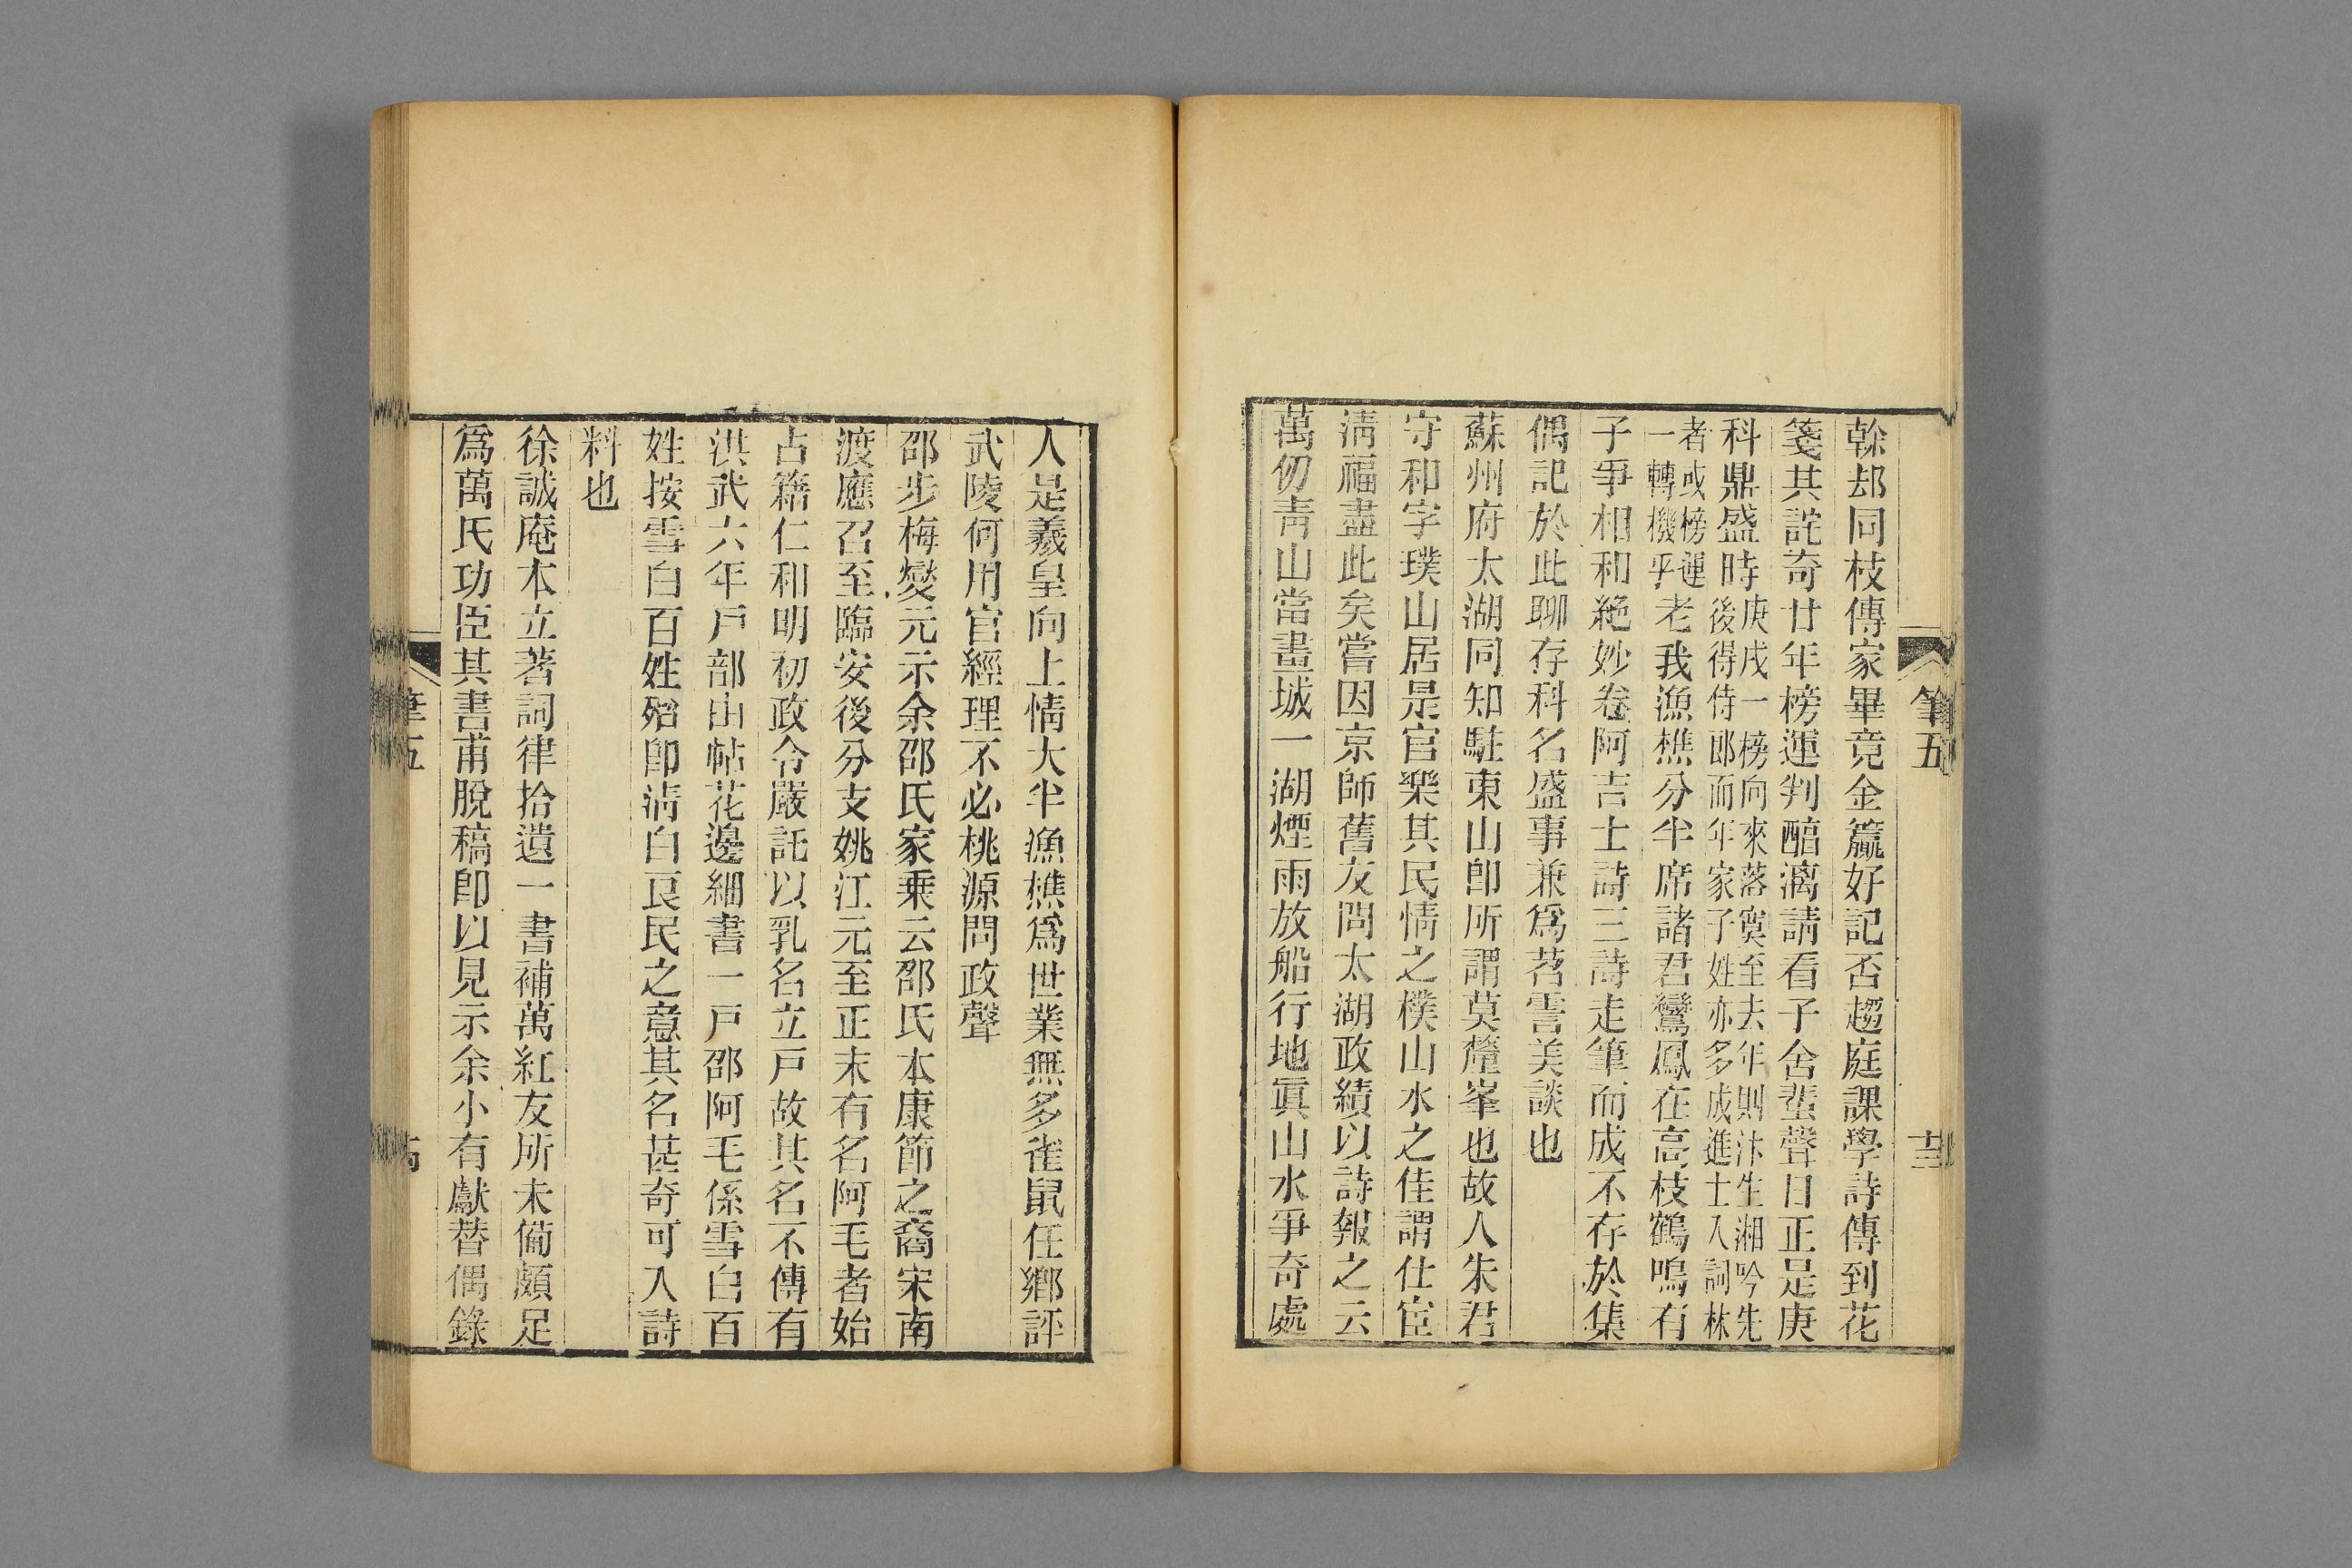 筆五
十三
榦却同枝傳家畢竟金籯好記否趨庭課學詩傳到花
箋其詫奇廿年榜運判醕漓請看子舍蜚聲日正是庚
科鼎盛時庚戌一榜向來落寞至去年則汴生湘吟先
後得侍郎而年家子姓亦多成進士入詞林
者或榜運
一轉機乎老我漁樵分半席諸君鸞鳳在高枝鶴鳴有
子爭相和絶妙卷阿吉士詩三詩走筆而成不存於集
偶記於此聊存科名盛事兼爲苕霅美談也
蘇州府太湖同知駐東山卽所謂莫釐峯也故人朱君
守和字璞山居是官樂其民情之樸山水之佳謂仕宦
淸福盡此矣嘗因京師舊友問太湖政績以詩報之云
萬仞靑山當畫城一湖煙雨放船行地眞山水爭奇處
人是羲皇向上情大半漁樵爲世業無多雀鼠任鄉評
武陵何用官經理不必桃源問政聲
邵步梅燮元示余邵氏家乘云邵氏本康節之裔宋南
渡應召至臨安後分支姚江元至正末有名阿毛者始
占籍仁和明初政令嚴託以乳名立戸故其名不傳有
洪武六年戸部由帖花邊細書一戸邵阿毛係雪白百
姓按雪白百姓殆卽淸白良民之意其名甚奇可入詩
料也
徐誠庵本立著詞律拾遺一書補萬紅友所未備頗足
爲萬氏功臣其書甫脫稿卽以見示余小有獻替偶錄
筆五